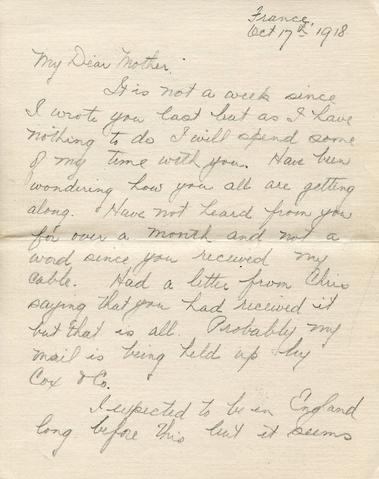 France,
Oct 17th 1918
My Dear Mother:
It is not a week since
I wrote you last but as I have
nothing to do I will spend some
of my time with you. Have been
wondering how you all are getting
along. Have not heard from you
for over a month and not a
word since you received my
cable. Had a letter from Chris
saying that you had received it
but that is all. Probably my
mail is being held up by
Cox & Co.
I expected to be in England
long before this but it seems